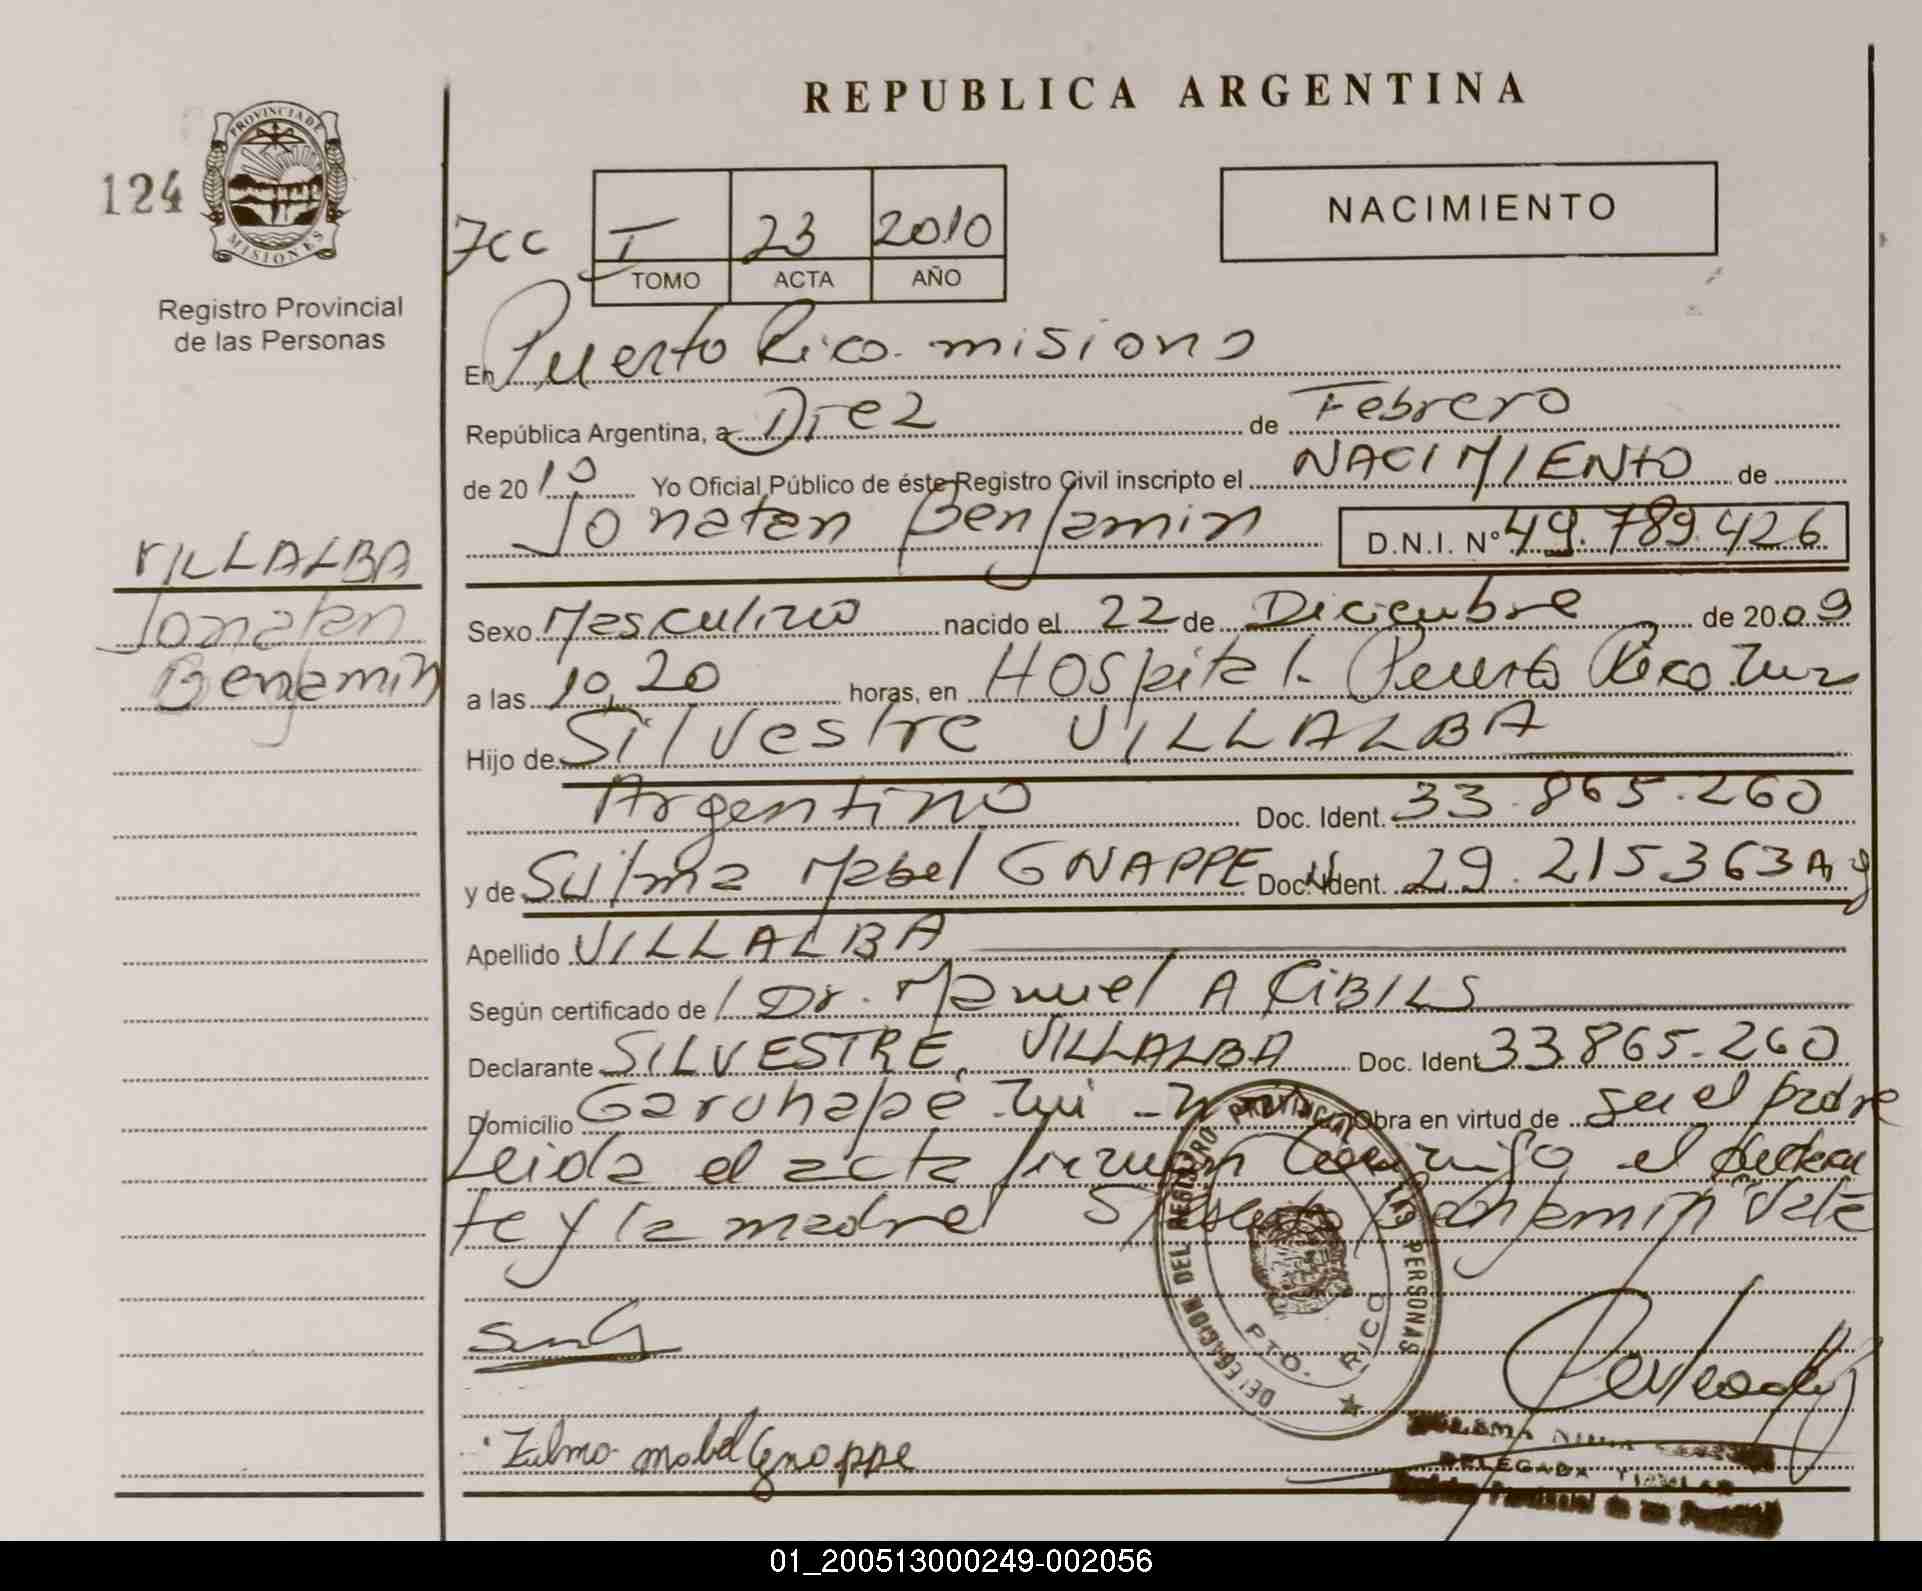 REPUBLICA ARGENTINA
124
PROVINCIA DE
MISIONES
Registro Provincial
de las Personas
I 23 2010
TOMO ACTA AÑO
NACIMIENTO
En Puerto Rico. misiones
República Argentina, a Diez de Febrero
de 2010 Yo Oficial Público de éste Registro Civil inscripto el NACIMIENTO de
Jonatan Benjamin D.N.I. Nº 49.789.426
VILLALBA
Jonatan
Benjamin
Sexo Masculino nacido el 22 de Diciembre de 2009
a las 10,20 horas, en Hospital. Puerto Rico
Hijo de Silvestre VILLALBA
Argentino Doc. Ident. 33.865.260
y de Mabel GNAPPE Doc. Ident. 29.215.363 Arg
Apellido VILLALBA
Según certificado de Dr. Manuel A CIBILS
Declarante SILVESTRE VILLALBA Doc. Ident 33.865.260
Domicilio Garuhapé Obra en virtud de ser el padre
Leida el acta el
te y la madre Benjamin" Vale
DELEGACION DEL REGISTRO PROVINCIAL DE LAS PERSONAS
PTO. RICO
Zulma mabel Gnappe
DELEGADA TITULAR
Registro Provincial de las Personas
01_200513000249-002056